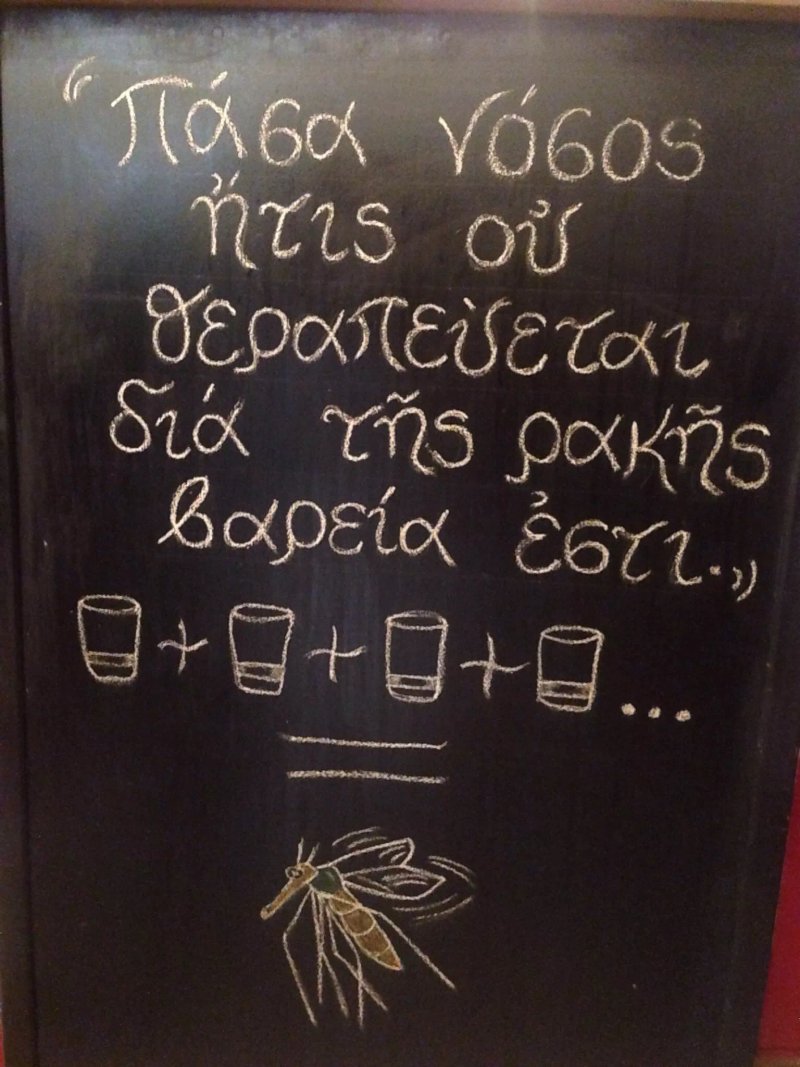 “Πάσα νόσος
ἥτις οὐ
θεραπεὐεται
διά τῆς ρακῆς
βαρεία ἐστι.„
+ + + ...
=